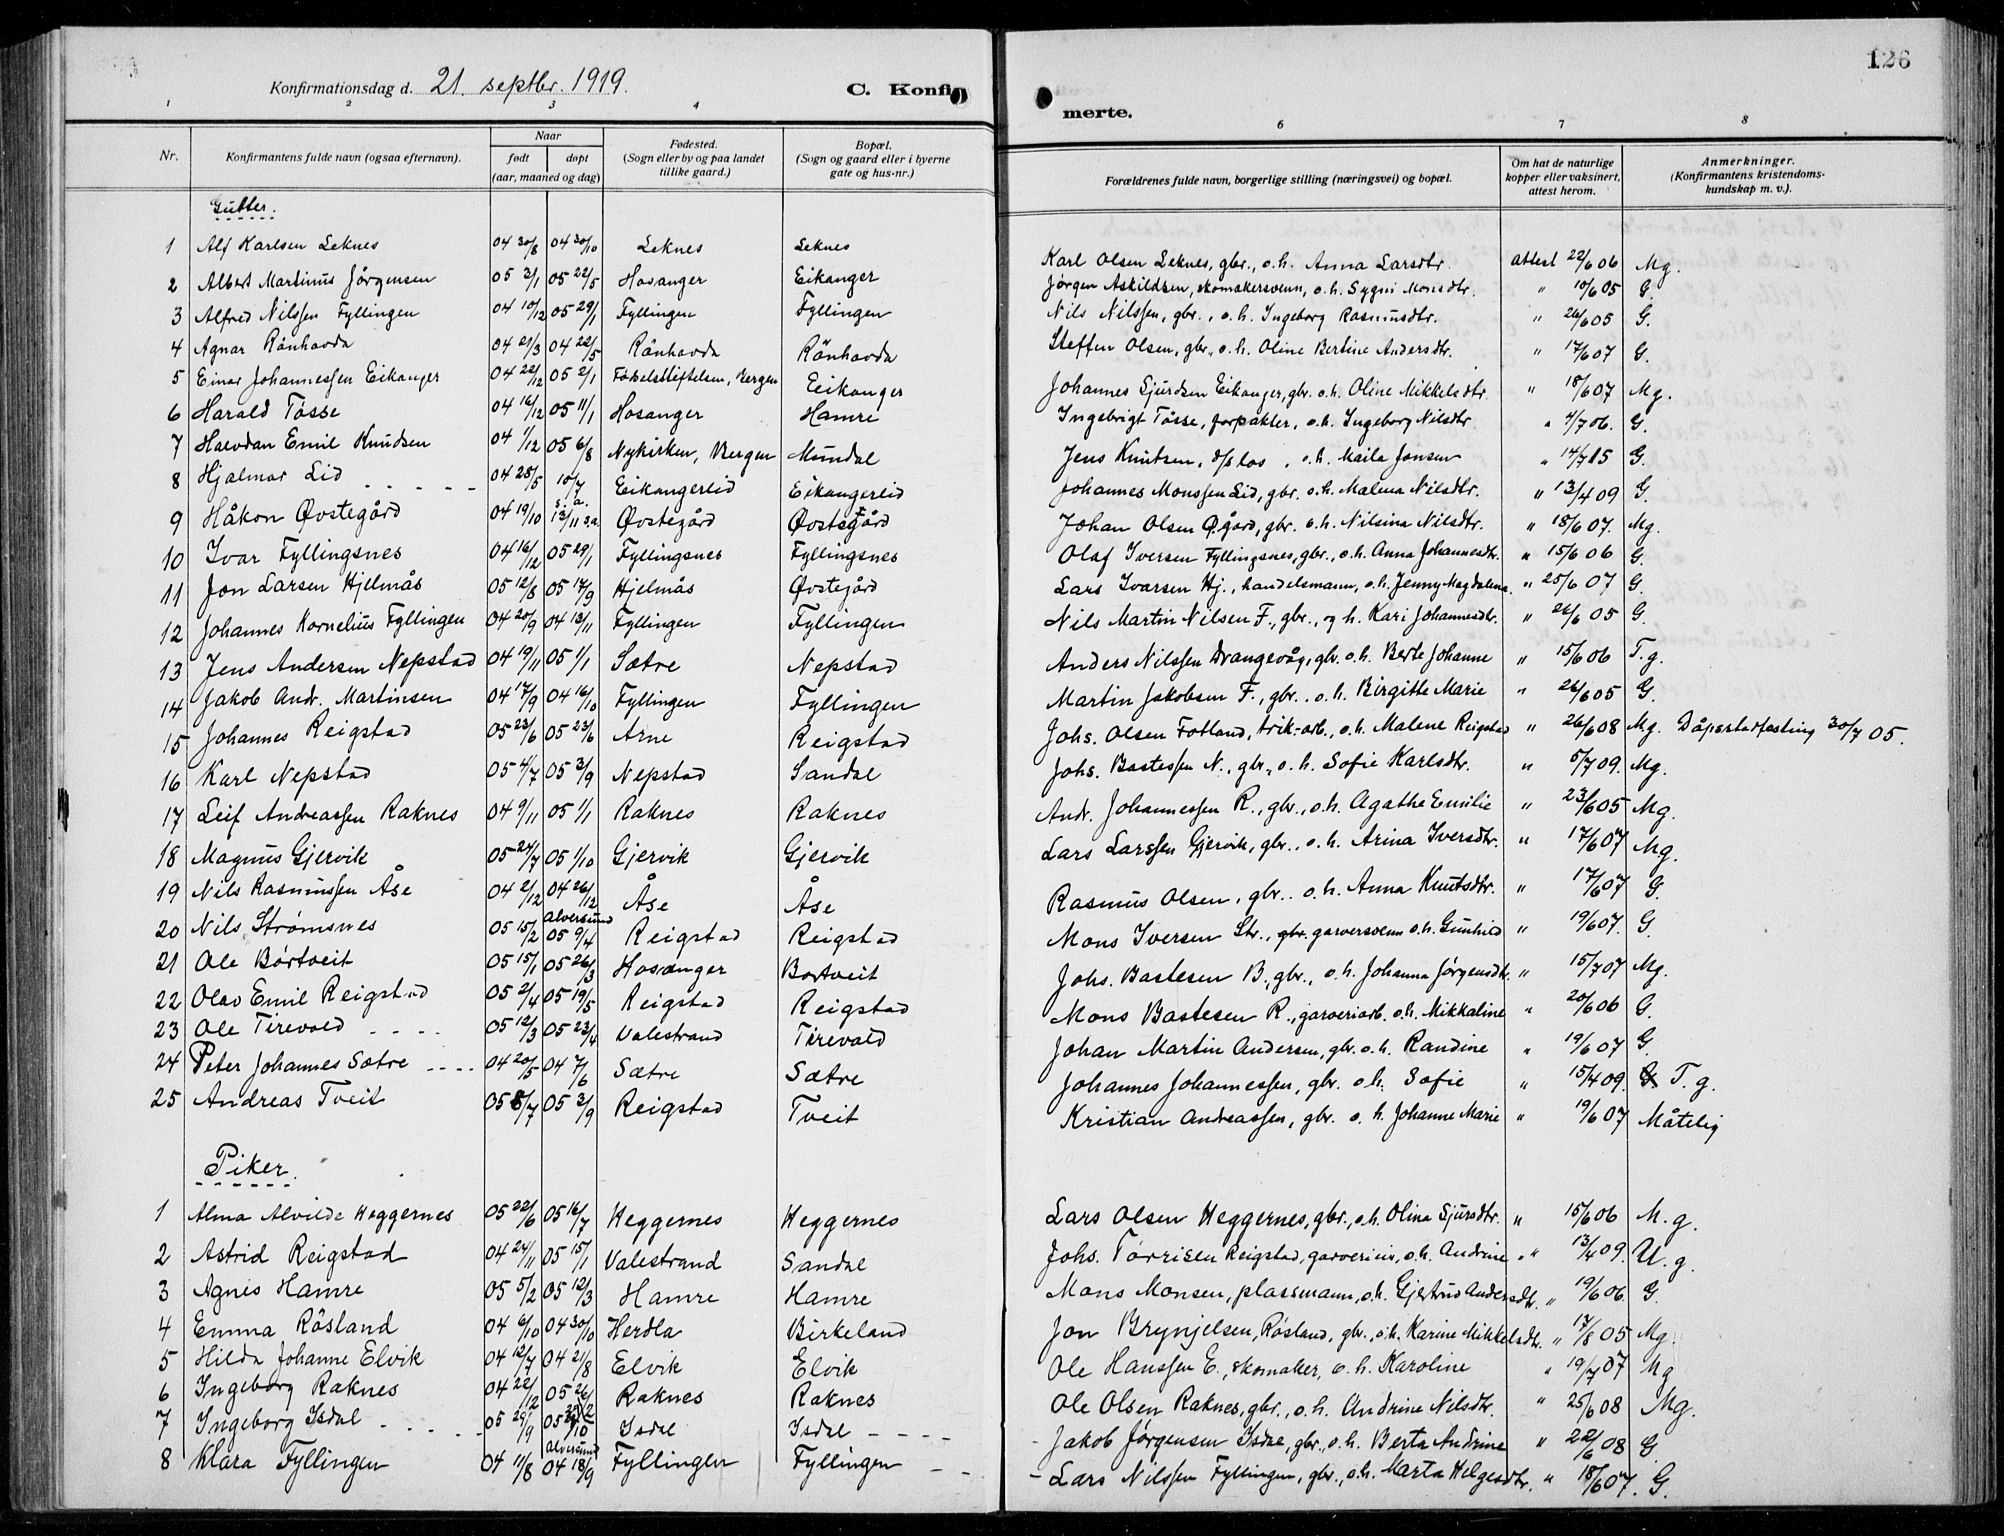 126
Konfirmationsdag d. 21. septbr. 1919.
C. Konfir
merte.
1 2 3 4 6 7 8
Nr. Konfirmantens fulde navn (ogsaa efternavn). Naar født døpt (aar, maaned og dag) Fødested. (Sogn eller by og paa landet tillike gaard.) Bopæl. (Sogn og gaard eller i byerne gate og hus-nr.) Forældrenes fulde navn, borgerlige stilling (næringsvei) og bopæl. Om hat de naturlige kopper eller vaksinert, attest herom. Anmerkninger. (Konfirmantens kristendomskundskap m. v.).
Gutter.
1 Alf Karlsen Leknes 04 30/8 04 30/10 Leknes Leknes Karl Olsen Leknes, gbr., o.h. Anna Larsdtr. attest 22/6 06 Mg.
2 Albert Martinus Jørgensen 05 2/1 05 22/5 Hosanger Eikanger Jørgen Askildsen, skomakersvenn, o.h. Sygni Monsdtr. " 10/6 05 G.
3 Alfred Nilssen Fyllingen 04 10/12 05 29/1 Fyllingen Fyllingen Nils Nilssen, gbr., o.h. Ingeborg Rasmusdtr. " 26/6 05 G.
4 Agnar Rönhovda 04 21/3 04 22/5 Rönhovda Rönhovda Steffen Olsen, gbr., o.h. Oline Bertine Andersdtr. " 17/6 07 G.
5 Einar Johannessen Eikanger 04 22/12 05 2/1 Fødselsstiftelsen, Bergen Eeikanger Johannes Sjurdsen Eikanger, gbr. o.h. Oline Mikkelsdtr. " 18/6 07 Mg.
6 Harald Tösse 04 16/12 05 11/1 Hosanger Hamre Ingebrigt Tösse, forpakter, o.h. Ingeborg Nilsdtr " 4/7 06. G.
7 Halvdan Emil Knudsen 04 1/12 05 6/8 Nykirken, Bergen Mundal Jens Knutsen, d/s los, o.h. Maila Jonsen " 14/7 15 G.
8 Hjalmar Lid 04 28/5 10/7 s.a. Eikangerlid Eikangerlid Johannes Monssen Lid, gbr. o.h. Malena Nilsdtr. " 13/4 09 G.
9 Håkon Øvstegård 04 19/10 13/11 s.a. Øvstegård Øvstegård Johan Olsen Ø.gård, gbr. o.h. Nilsina Nilsdtr. " 18/6 07. Mg.
10 Ivar Fyllingsnes 04 16/12 05 29/1 Fyllingsnes Fyllingsnes Olaf Iversen Fyllingsnes, gbr., o.h. Anna Johannesdtr. " 15/6 06 G.
11 Jon Larsen Hjelmås 05 12/8 05 17/9 Hjelmås Øvstegård Lars Ivarsen Hj., handelsmann, o.h. Jenny Magdalena " 25/6 07 G.
12 Johannes Kornelius Fyllingen 04 20/9 04 13/11 Fyllingen Fyllingen Nils Martin Nilsen F., gbr., og h. Kari Johannesdtr. " 26/6 05 G.
13 Jens Andersen Nepstad 04 19/11 05 1/1 Sætre Nepstad Anders Nilssen Drangevåg, gbr. o.h. Berte Johanne " 15/6 06 T.g.
14 Jakob Andr. Martinsen 04 17/9 04 16/10 Fyllingen Fyllingen Martin Jakobsen F., gbr., o.h. Birgitte Marie " 26/6 05 G.
15 Johannes Reigstad 05 23/6 05 23/6 Arne Reigstad Johs. Olsen Fotland, trik-arb., o.h. Malene Reigstad " 26/6 08 Mg. Dåpsstadfesting 30/7 05.
16 Karl Nepstad 05 4/7 05 3/9 Nepstad Sandal Johs. Bastessen N., gbr., o.h. Sofie Karlsdtr. " 5/7 09. Mg.
17 Leif Andreassen Raknes 04 9/11 05 1/1 Raknes Raknes Andr. Johannessen R., gbr., o.h. Agathe Emilie " 23/6 05 Mg.
18 Magnus Gjervik 05 24/7 05 1/10 Gjervik Gjervik Lars Larssen Gjervik, gbr., o.h. Arina Iversdtr. " 17/6 07 Mg.
19 Nils Rasmussen Åse 04 2/12 04 26/12 Åse Åse Rasmus Olsen, gbr.. o.h. Anna Knutsdtr. " 17/6 07 G.
20 Nils Strømsnes 05 15/2 Alversund 05 9/4 Reigstad Reigstad Mons Iversen Str., gbr. garversvenn o.h. Gunhild " 19/6 07. G.
21 Ole Börtveit 05 15/1 05 26/3 Hosanger Bortveit Johs. Bastesen B., gbr., o.h. Johanna Jörgensdtr. " 15/7 07 Mg.
22 Olav Emil Reigstad 05 2/4 05 19/5 Reigstad Reigstad Mons Bastesen R., garveriarb. o.h. Mikkaline " 20/6 06 G.
23 Ole Tirevold 05 12/3 05 23/4 Valestrand Tirevold Johan Martin Andersen, gbr. o.h. Randine " 19/6 07 G.
24 Peter Johannes Sætre 04 20/5 04 7/6 Sætre Sætre Johannes Johannessen, gbr. o.h. Sofie " 15/4 09. G T.g.
25 Andreas Tveit 05 8/7 05 3/9 Reigstad Tveit Kristian Andreassen, gbr. o.h. Johanne Marie " 19/6 07 Måtelig
Piker.
1 Alma Alvilde Heggernes 05 22/6 05 16/7 Heggernes Heggernes Lars Olsen Heggernes, gbr., o.h. Olina Sjursdtr. " 15/6 06 M.g.
2 Astrid Reigstad 04 24/11 05 15/1 Valestrand Sandal Johs. Tørrisen Reigstad, garverieier, o.h. Andrine " 13/4 09. U.g.
3 Agnes Hamre 05 5/2 05 12/3 Hamre Hamre Mons Monsen, plassmann, o.h. Gjertrud Andersdtr. " 19/6 06. G.
4 Emma Rösland 04 6/10 04 30/10 Herdla Birkeland Jon Brynjelsen, Røsland, gbr., o.h. Karine Mikkelsdtr. " 17/8 05 Mg.
5 Hilda Johanne Elvik 04 12/7 04 21/8 Elvik Elvik Ole Hanssen E., skomaker, o.h. Karoline " 19/7 07 Mg
6 Ingeborg Raknes 04 22/12 05 26/2 Raknes Raknes Ole Olsen Raknes, gbr., o.h. Andrine Nilsdtr. " 25/6 08 Mg.
7 Ingeborg Isdal 05 29/9 05 29/10 Isdal Isdal Jakob Jørgensen Isdal, gbr., o.h. Berta Andrine " 22/6 08 G.
8 Klara Fyllingen 04 11/8 Alversund 04 18/9 Fyllingen Fyllingen Lars Nilssen Fyllingen, gbr., o.h. Marta Helgesdtr. " 18/6 07. G.